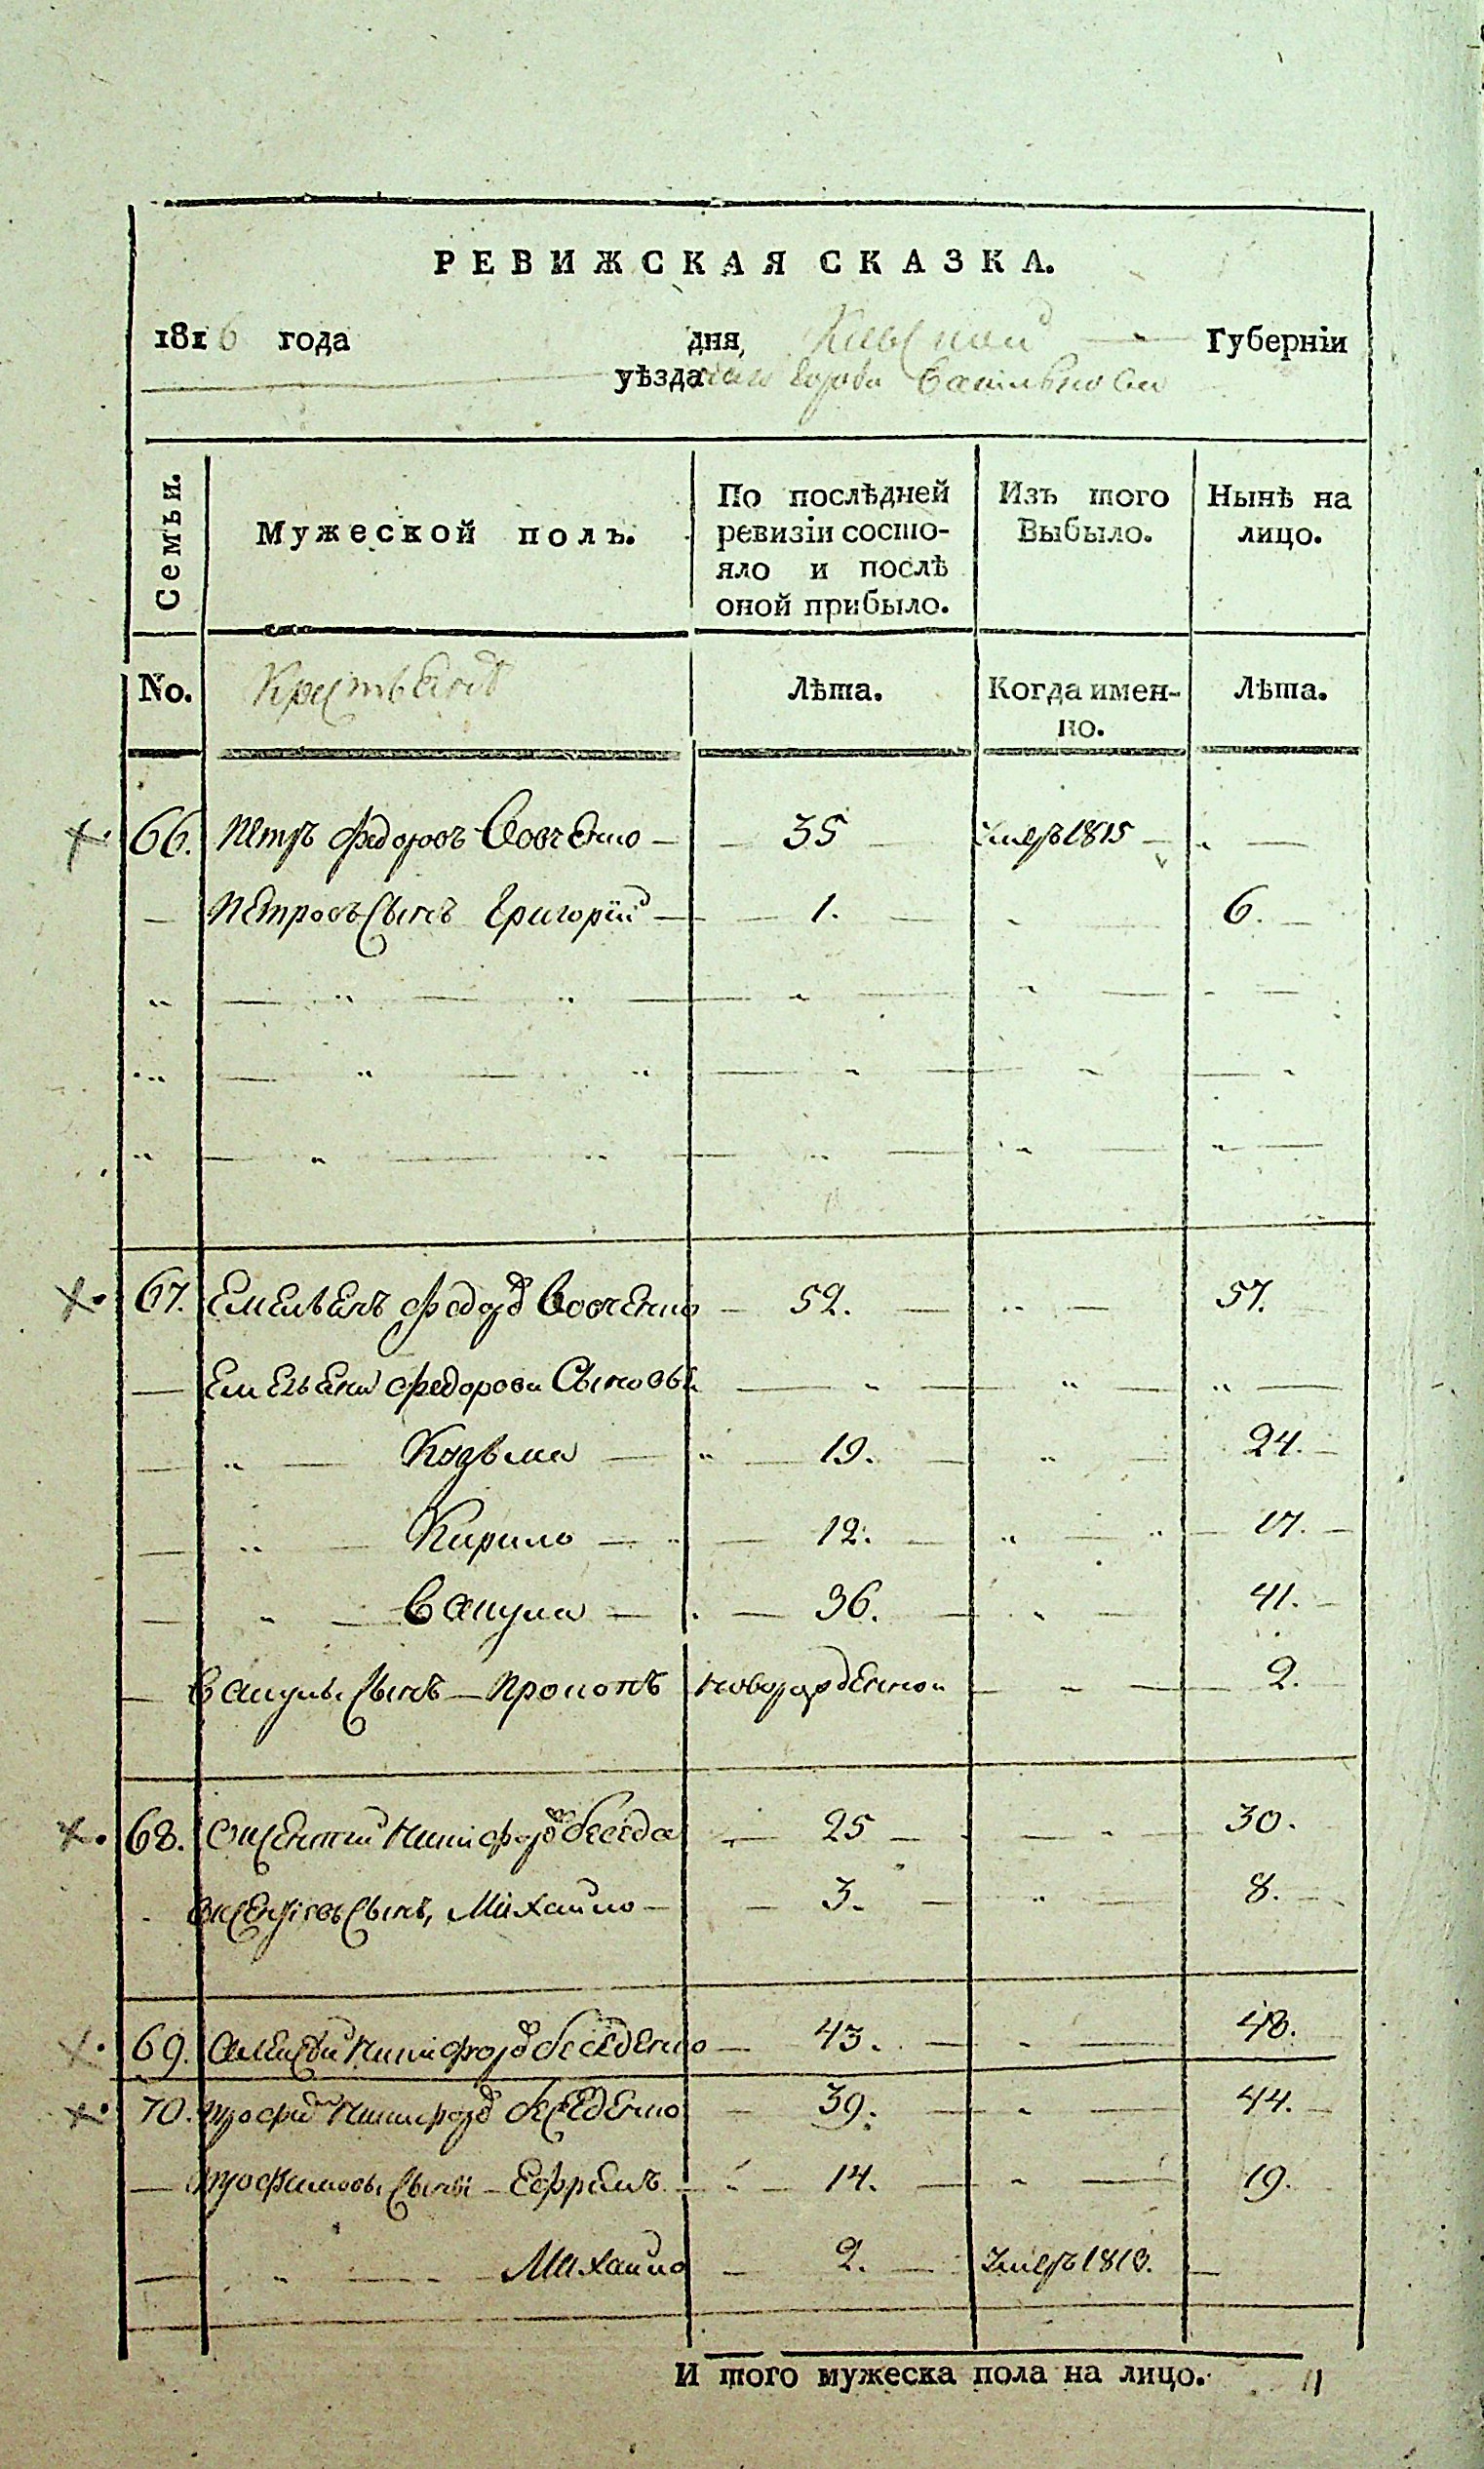 РЕВИЖСКАЯ СКАЗКА.
1816 года дня, Киевской Губерніи
уѣзда города Василькова
Семьи. Мужеской полъ. По послѣдней ревизіи состояло и послѣ оной прибыло. Изъ того Выбыло. Нынѣ на лицо.
No. Крестьянѣ Лѣта. Когда именно. Лѣта.
66. Петръ Федоровъ Вовченко 35 Умеръ 1815
Петровъ Сынъ Григорій 1. 6.
67. Емельянъ Федоровъ Вовченко 52. 57.
Емельяна Федорова Сыновья
Козьма 19. 24.
Кирило 12. 17.
Вакула 36. 41.
Вакулы Сынъ Прокопъ новорожденной 2.
68. Оксентій Никифоровъ Беседа 25 30.
Сынъ, Михайло 3. 8.
69. Алексѣй Никифоровъ Беседенко 43. 48.
70. Трофимъ Никифоровъ Беседенко 39. 44.
Трофимовы Сыны Ефремъ 14. 19.
Михайло 2. Умеръ 1813.
И того мужеска пола на лицо. 11